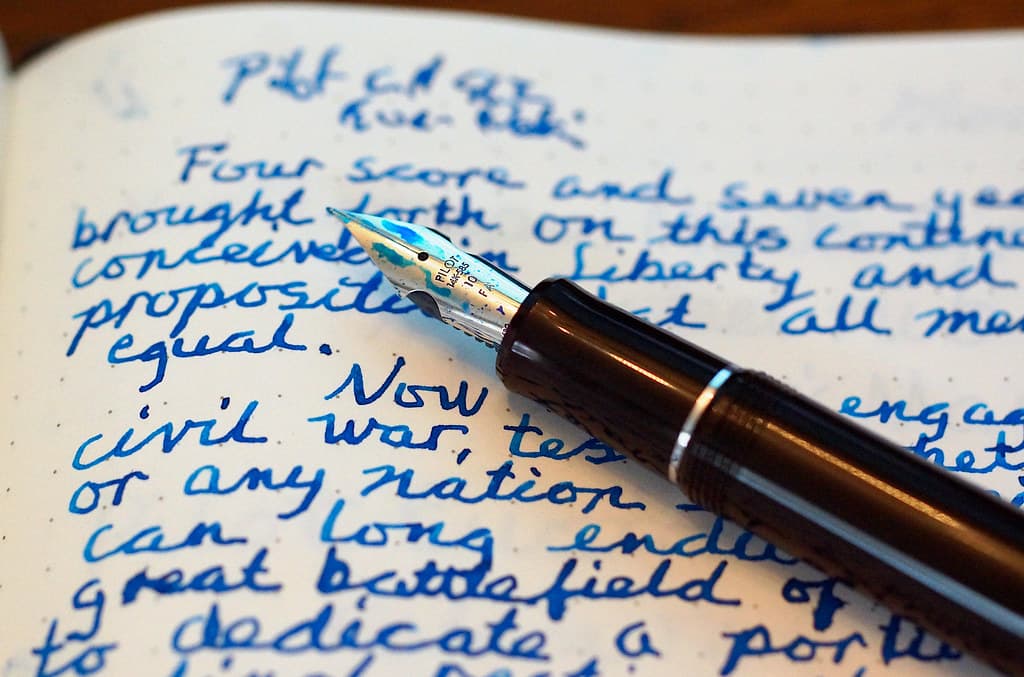 Four score and seven yea
brought forth on this contine
conceived in liberty and
propositi at all me
equal.
Now engag
civil war, tes heth
or any nation
can long endu
great battlefield of
to dedicate a porti
PILOT
14K-585
10
FA